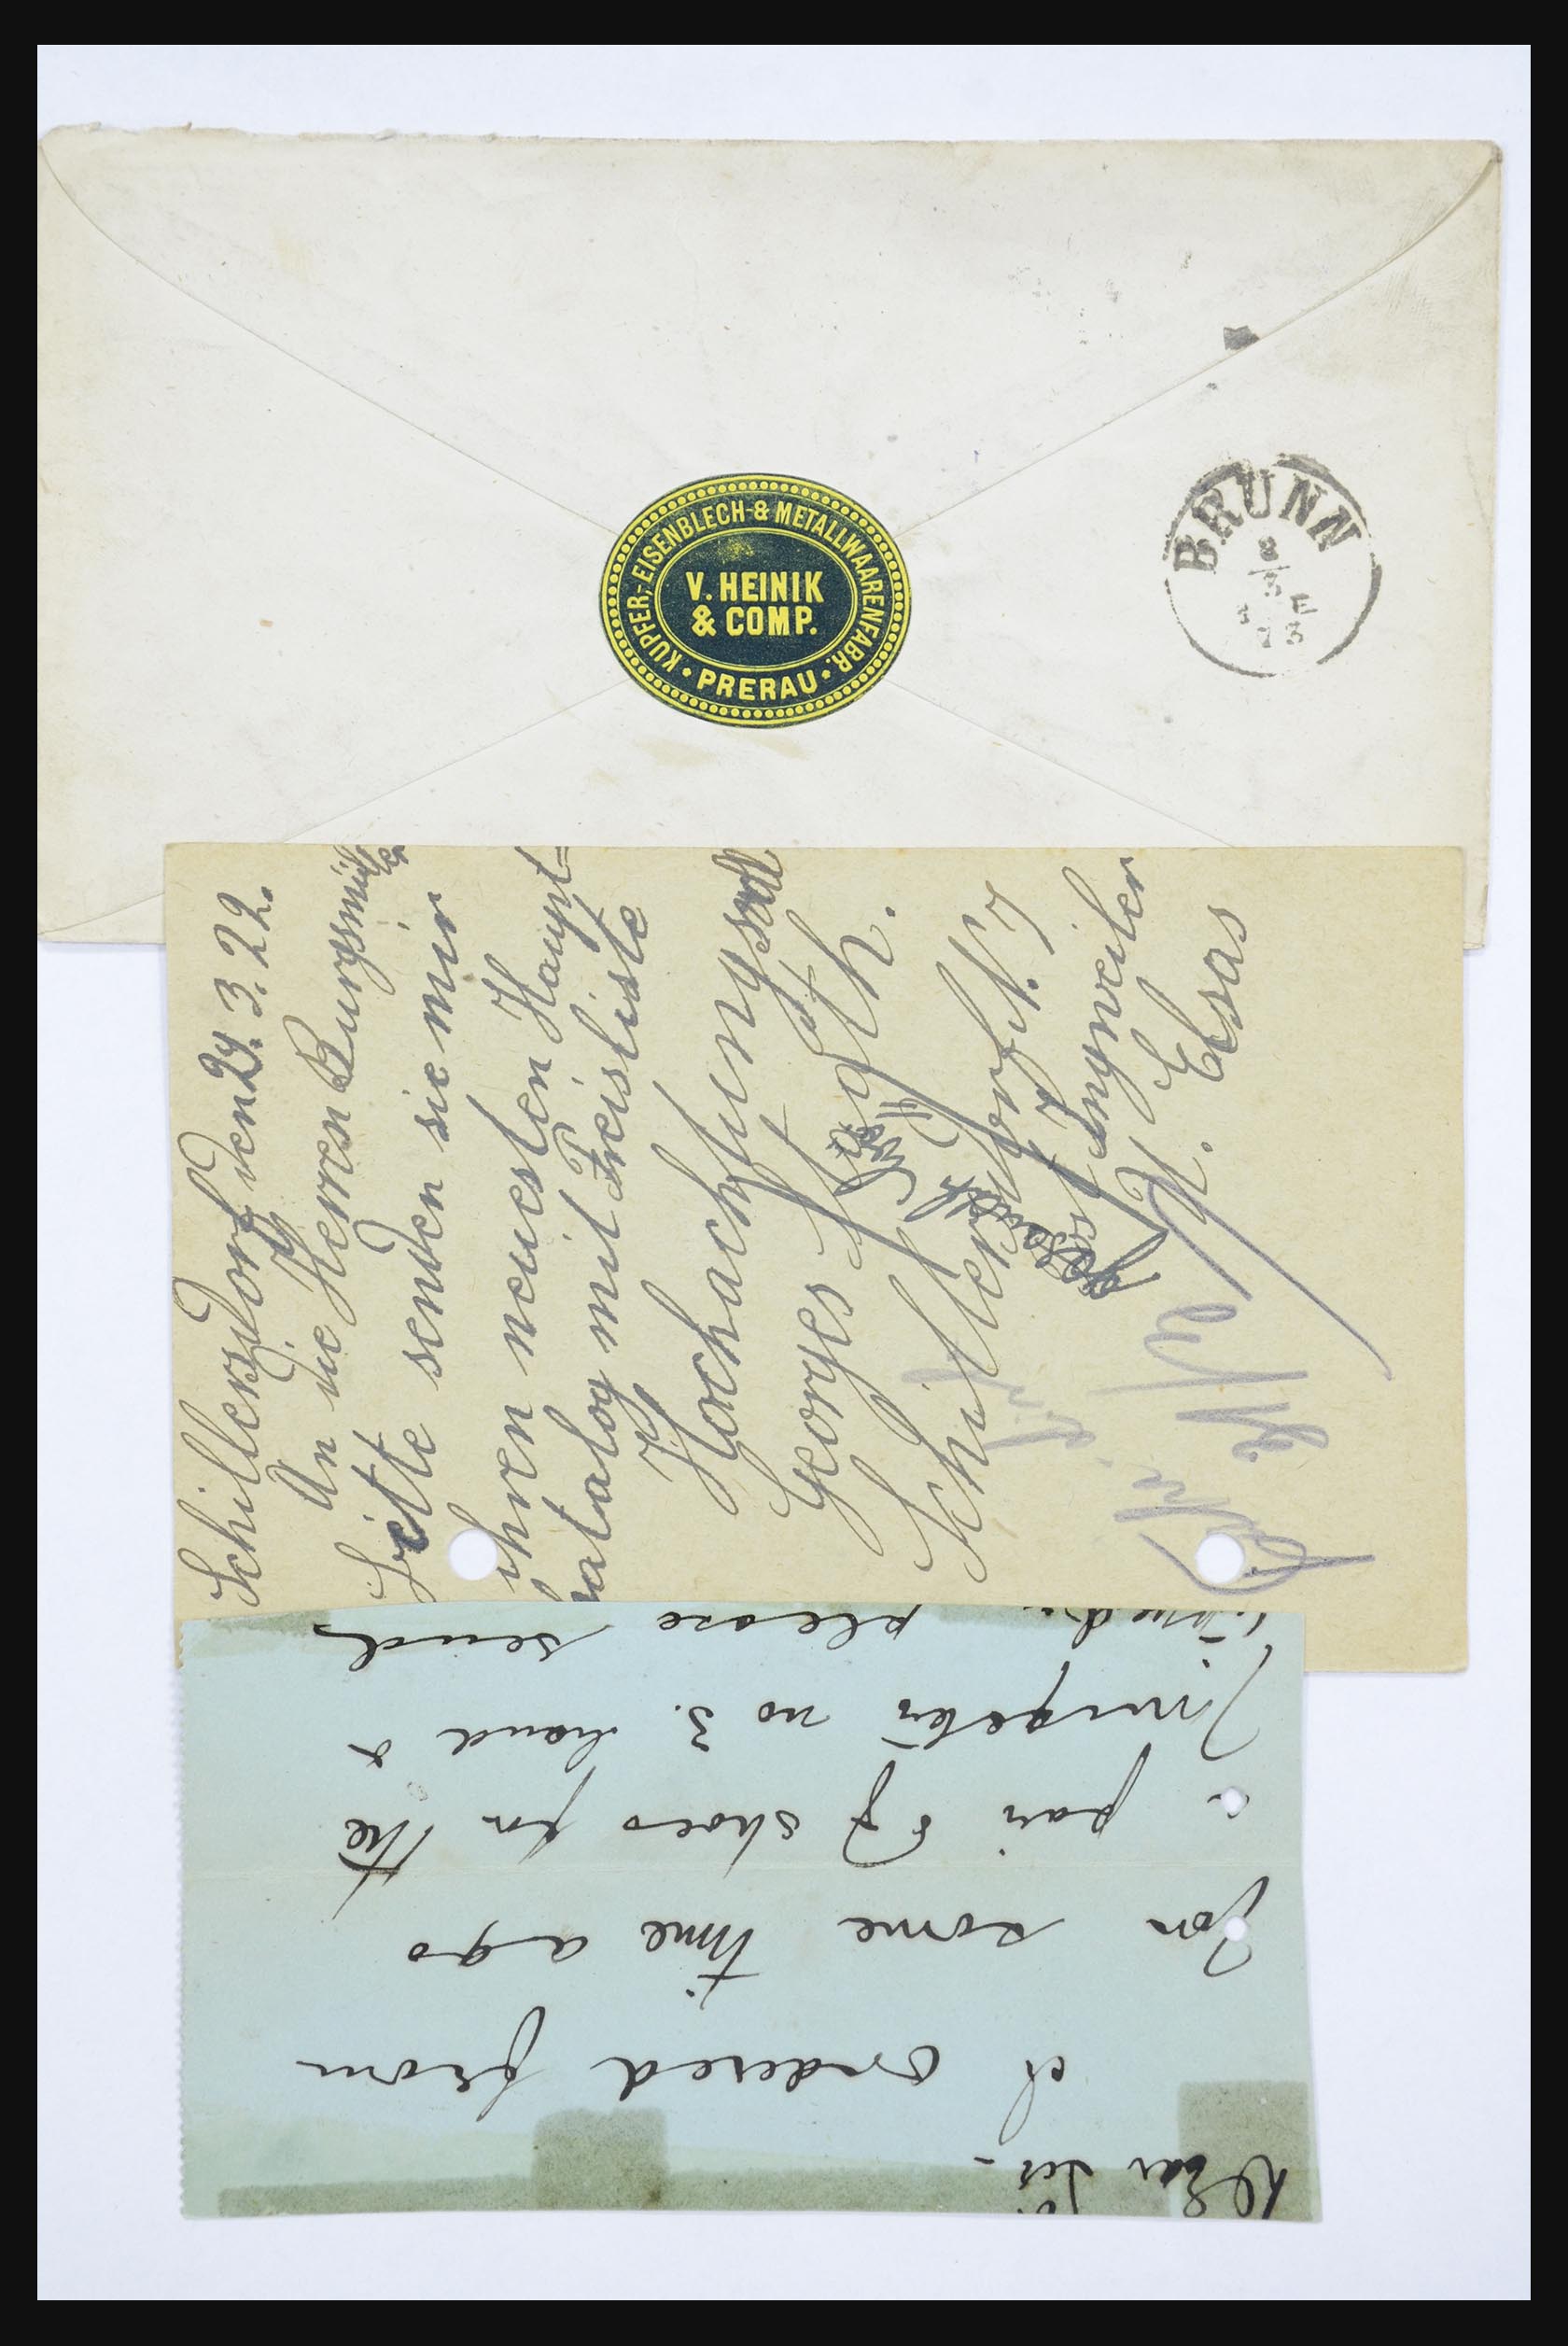 KUPFER-, EISENBLECH- & METALLWAARENFABR.
V. HEINIK
& COMP.
• PRERAU •
BRÜNN
Schillersdorf den 29. 3. 22.
An die Herren
Bitte senden sie mir
ihren neuesten Haupt=
katalog mit Preisliste
Hochachtungs
Georges
Schillersdorf N. 7
post Ingweiler
U. Elsas
Dear Sir -
I ordered from
for some time ago
a pair of shoes for the
no 3. hand &
please send